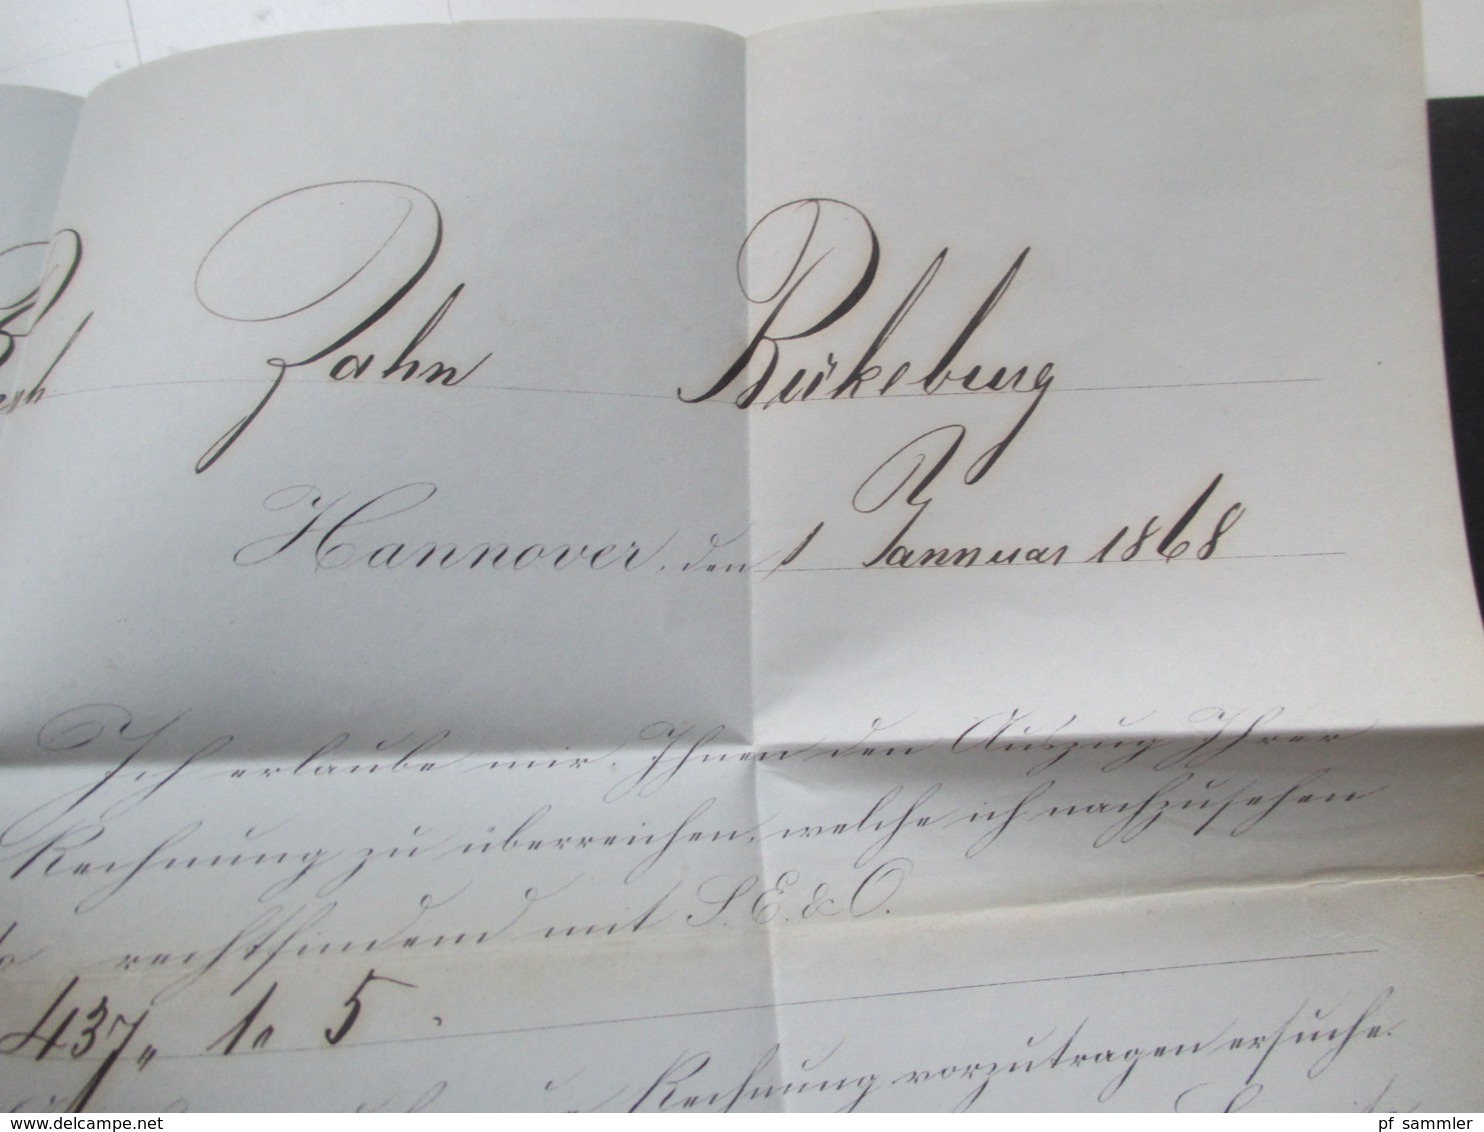 Zahn Bückeburg
Hannover, den 1 Januar 1868
Ich erlaube mir, Ihnen den Auszug Ihrer
Rechnung zu überreichen, welche ich nachzusehen
rechtfindend mit S. E. & O.
437 „ 1 „ 5
Rechnung vorzutragen ersuche.
pf sammler